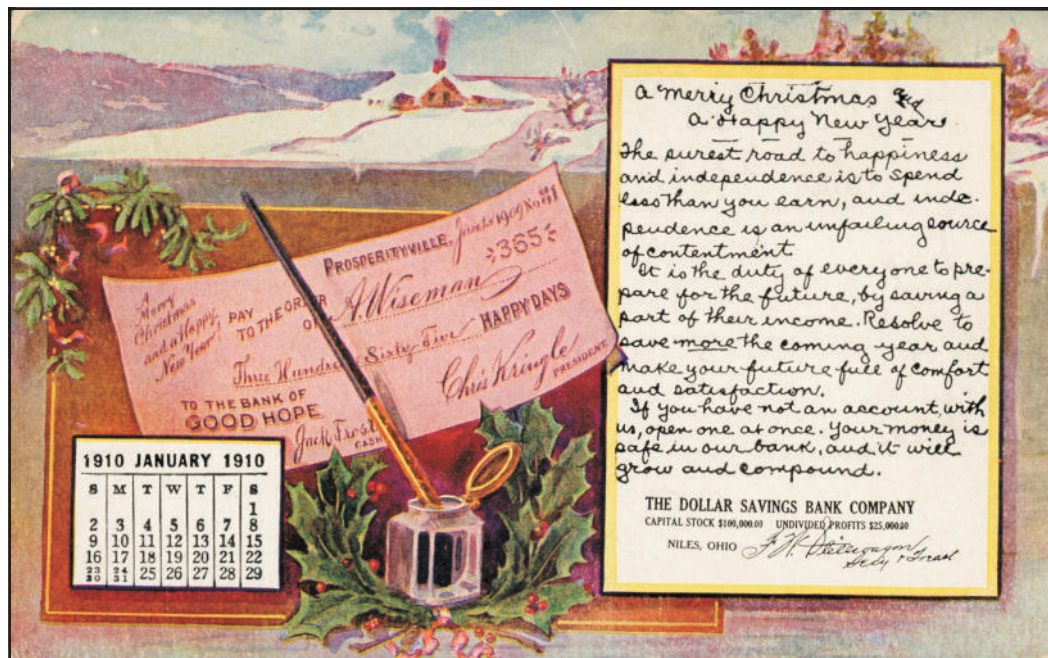 A
Merry
Christmas
and a Happy
New Year
PROSPERITYVILLE, 1909 No.
365
PAY
TO THE ORDER
OF A. Wiseman
Three Hundred Sixty Five HAPPY DAYS
TO THE BANK OF
GOOD HOPE
Chris Kringle
PRESIDENT
Jack Frost
CASH
1910 JANUARY 1910
S M T W T F S
1
2 3 4 5 6 7 8
9 10 11 12 13 14 15
16 17 18 19 20 21 22
23 24 25 26 27 28 29
30 31
A Merry Christmas and
A Happy New Year.
The surest road to happiness
and independence is to spend
less than you earn, and inde-
pendence is an unfailing source
of contentment
It is the duty of everyone to pre-
pare for the future, by saving a
part of their income. Resolve to
save more the coming year and
make your future full of comfort
and satisfaction.
If you have not an account with
us, open one at once. Your money is
safe in our bank, and it will
grow and compound.
THE DOLLAR SAVINGS BANK COMPANY
CAPITAL STOCK $100,000.00 UNDIVIDED PROFITS $25,000.00
NILES, OHIO
Secy & Treas